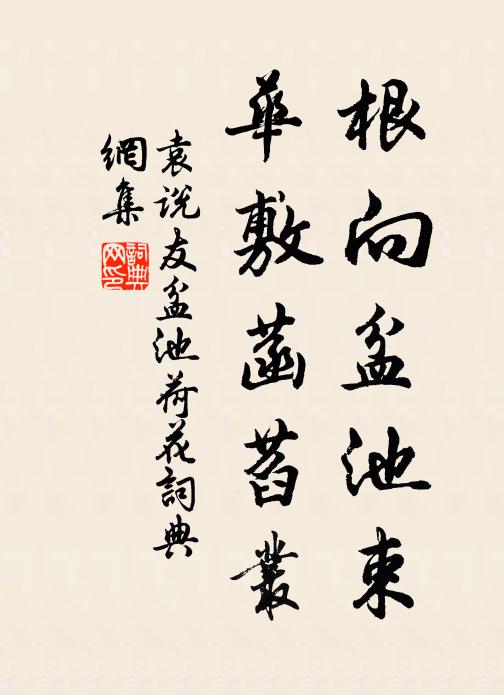 根向盆池束
華敷菡萏叢
袁说友盆池荷花詞典
網集
詞典
网印